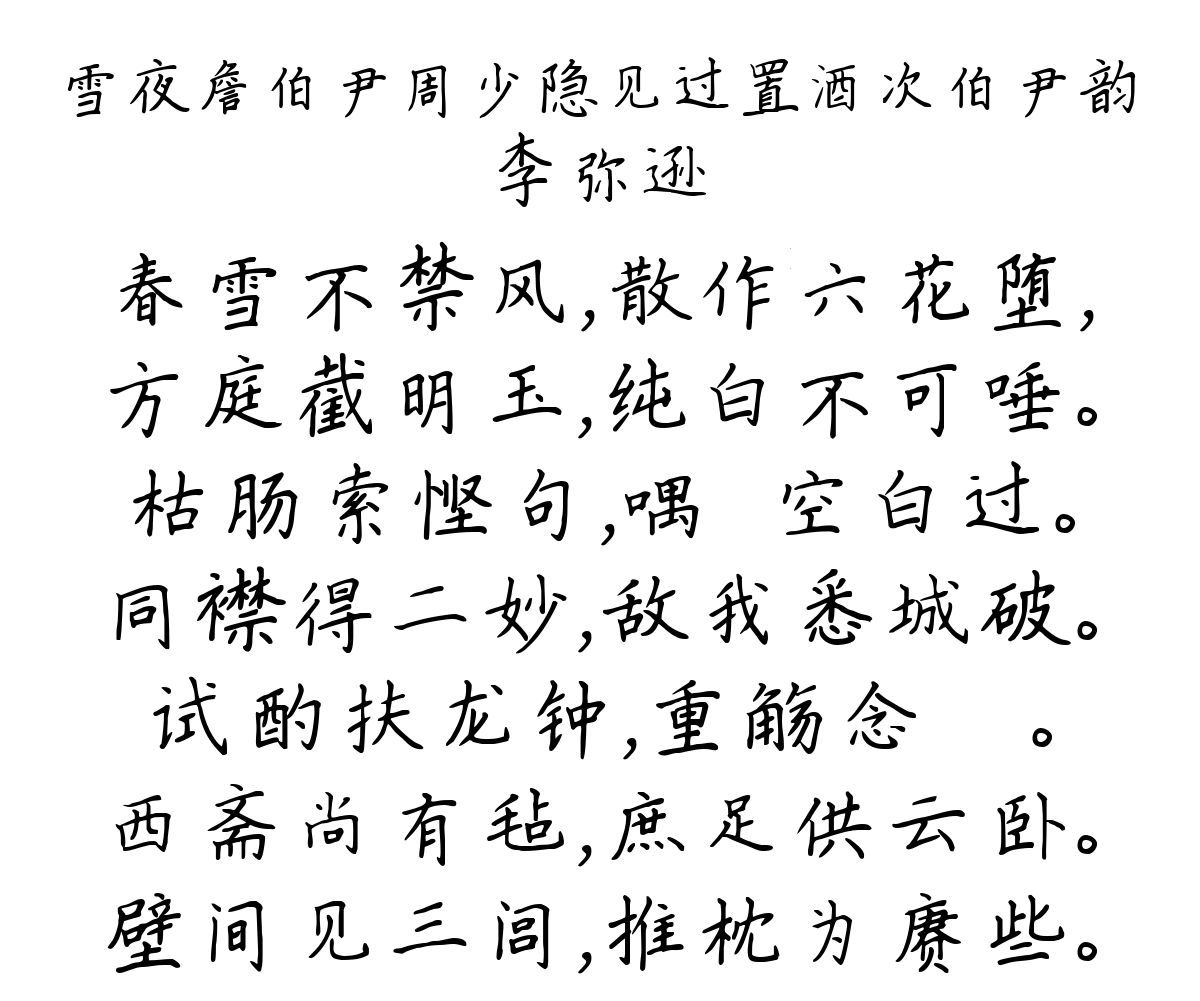 雪夜詹伯尹周少隐见过置酒次伯尹韵
李弥逊
春雪不禁风,散作六花堕,
方庭截明玉,纯白不可唾。
枯肠索悭句,喁 空白过。
同襟得二妙,敌我悉城破。
试酌扶龙钟,重觞念 。
西斋尚有毡,庶足供云卧。
壁间见三闾,推枕为赓些。